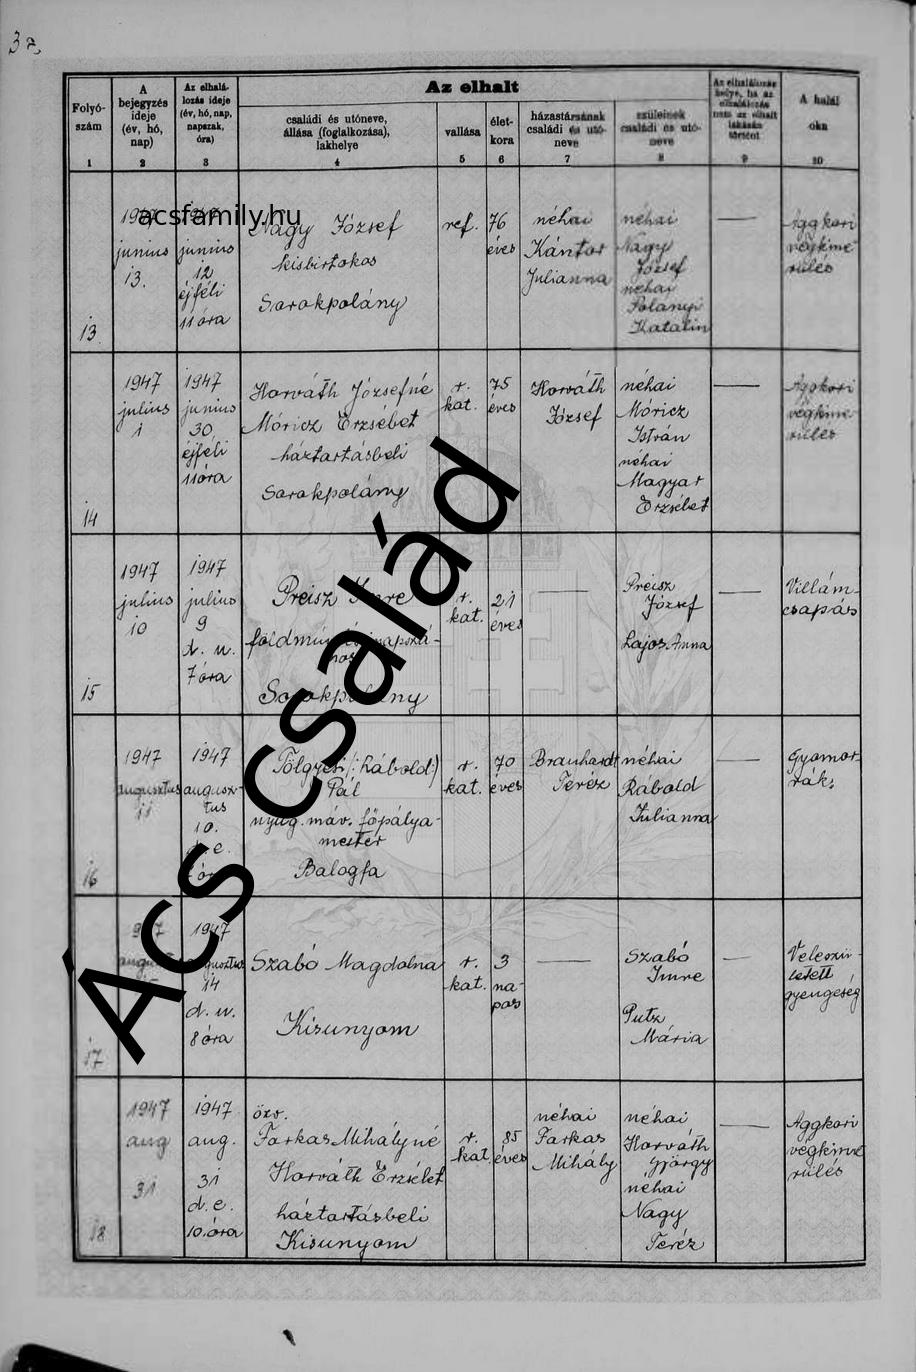 37.
Az elhalt
Folyó-
szám
1
A
bejegyzés
ideje
(év, hó,
nap)
2
Az elhalá-
lozás ideje
(év, hó, nap,
napszak,
óra)
3
családi és utóneve,
állása (foglalkozása),
lakhelye
4
vallása
5
élet-
kora
6
házastársának
családi és utó-
neve
7
szüleinek
családi és utó-
neve
8
Az elhalálozás
helye, ha az
elhalálozás
nem az elhalt
lakásán
történt
9
A halál
oka
10
acsfamily.hu
13.
1947
junius
13.
1947
junius
12
éjféli
11 óra
Nagy József
kisbirtokos
Sorokpolány
ref.
76
éves
néhai
Kántor
Julianna
néhai
Nagy
József
néhai
Polányi
Katalin
Aggkori
végkime-
rülés
14
1947
julius
1
1947
junius
30
éjféli
11 óra
Horváth Józsefné
Móricz Erzsébet
háztartásbeli
Sorokpolány
r.
kat.
75
éves
Horváth
József
néhai
Móricz
István
néhai
Magyar
Erzsébet
Aggkori
végkime-
rülés
15
1947
julius
10
1947
julius
9
d. u.
7 óra
Preisz Imre
Sorokpolány
r.
kat.
21
éves
Preisz
József
Lajos Anna
Villám-
csapás
16
1947
augusztus
11
1947
augusz-
tus
10.
d. e.
óra
Tölgyesi (: Rábold)
Pál
nyug. máv. főpálya-
mester
Balogfa
r.
kat.
70
éves
Braunhardt
Teréz
néhai
Rábold
Julianna
Gyomor-
rák.
17
1947
1947
augusztus
14
d. u.
8 óra
Szabó Magdolna
Kisunyom
r.
kat.
3
na-
pos
Szabó
Imre
Putz
Mária
Veleszü-
letett
gyengeség
18
1947
aug
31
1947
aug.
31
d. e.
10 óra
özv.
Farkas Mihályné
Horváth Erzsébet
háztartásbeli
Kisunyom
r.
kat.
85
éves
néhai
Farkas
Mihály
néhai
Horváth
György
néhai
Nagy
Teréz
Aggkori
végkime-
rülés
Ács család